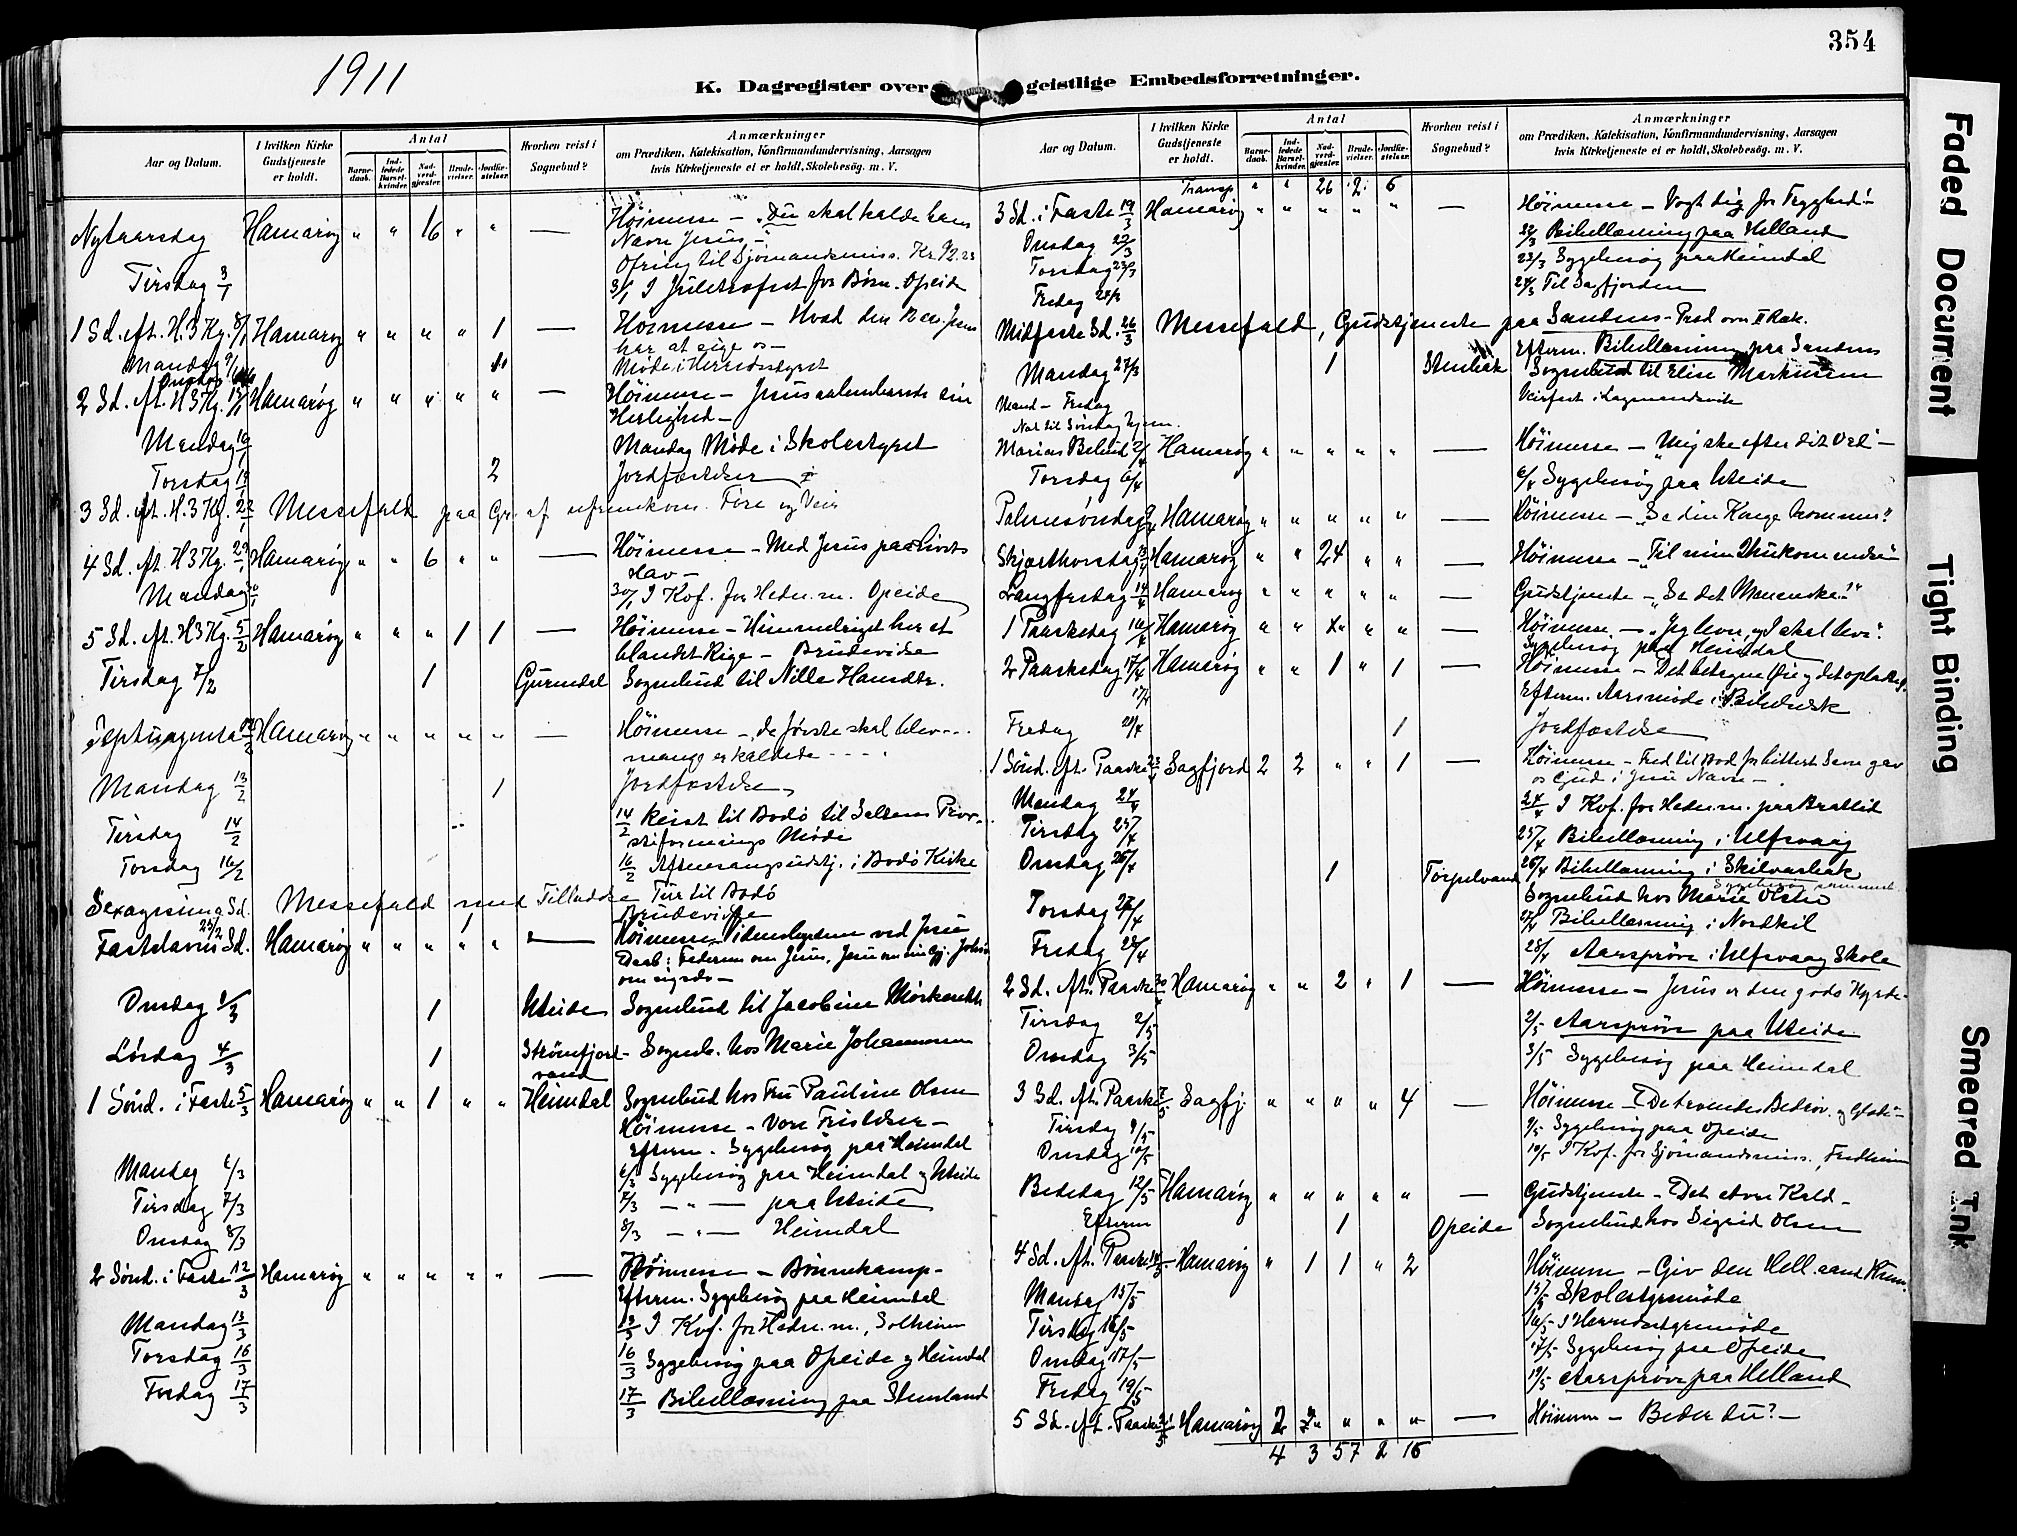 1911
354
K. Dagregister over geistlige Embedsforretninger.
Aar og Datum.
I hvilken Kirke Gudstjeneste er holdt.
Antal
Barnedaab.
Indledede Barselkvinder.
Nadverdgjester.
Brudevielser.
Jordfæstelser.
Hvorhen reist i Sognebud?
Anmærkninger
om Prædiken, Katekisation, Konfirmandundervisning, Aarsagen
hvis Kirketjeneste ei er holdt, Skolebesøg. m. V.
Nytaarsdag Hamarøy " " 16 " " — Höimesse – "Du skal kalde hans
Navn Jesus –
Ofring til Sjömandsmiss. Kr. 12.23
Tirsdag 3/1 3/1 I Juletræfest for Børn. Opeide
1 Sd. eft. H. 3 Kg. 8/1 Hamarøy " " " " 1 — Höimesse – Hvad den Jesus
har at sige os –
Mandag 9/1 Møde i Herredsstyret
2 Sd. eft. H. 3 Kg. 15/1 Hamarøy " " " " " — Höimesse – Jesus aabenbarede sin
Herlighed –
Mandag 16/1 Mandag Møde i Skolestyret
Torsdag 19/1 2 Jordfæstelser
3 Sd. eft. H. 3 Kg. 22/1 Messefald paa Gr. af ufremkom. Føre og Veir
4 Sd. eft. H 3 Kg. 29/1 Hamarøy " " 6 " " — Höimesse – Med Jesus paa Livets
Hav –
Mandag 30/1 30/1 I Kvf. for Hedn. m. Opeide
5 Sd. eft. H 3 Kg. 5/2 Hamarøy " " " 1 1 — Höimesse – Himmelriget her et
blandet Rige – Brudevielse
Tirsdag 7/2 1 Sognebud til Nille Hansdtr.
Septuagesima 12/2 Hamarøy " " " " " — Höimesse – "de første skal blev...
mange er kaldede – – – "
Mandag 13/2 1 Jordfæstelse
Tirsdag 14/2 14/2 Reist til Bodö til Saltens Prov-
stiforenings Møde
Torsdag 16/2 16/2 Aftensangsgudstj. i Bodö Kirke
Sexagesima Sd. Messefald med Tilladelse Tur til Bodö
25/2 1 Brudevielse
Fastelavns Sd. Hamarøy " " " " " — Höimesse ved Jesu
Daab: Faderen om Jesus, Jesus om sin Gj. Johs.
om sig selv –
Onsdag 1/3 1 Uteide Sognebud til Jacobine
Lördag 4/3 1 Strömfjord-vand Sogneb. hos Marie Johannesen
1 Sönd. i Faste 5/3 Hamarøy " " 1 " " Heimdal Sognebud hos Fru Pauline Olsen
Höimesse – Vore Fristelser –
Efterm. Sygebesög paa Heimdal
Mandag 6/3 6/3 Sygebesög paa Heimdal og Uteide
Tirsdag 7/3 7/3 – " – paa Uteide
Onsdag 8/3 8/3 – " – Heimdal
2 Sönd. i Faste 12/3 Hamarøy " " " " " — Höimesse – Bönnekamp –
Efterm. Sygebesög paa Heimdal
Mandag 13/3 13/3 I Kvf. for Hedn. m., Solheim
Torsdag 16/3 16/3 Sygebesög paa Opeide og Heimdal
Fredag 17/3 17/3 Bibellæsning paa Stenland
Aar og Datum.
I hvilken Kirke Gudstjeneste er holdt.
Antal
Barnedaab.
Indledede Barselkvinder.
Nadverdgjester.
Brudevielser.
Jordfæstelser.
Hvorhen reist i Sognebud?
Anmærkninger
om Prædiken, Katekisation, Konfirmandundervisning, Aarsagen
hvis Kirketjeneste ei er holdt, Skolebesøg. m. V.
Transp. " " 26 2 6
3 Sd. i Faste 19/3 Hamarøy " " " " " — Höimesse – Vogt dig for Tryghed! –
Onsdag 22/3 22/3 Bibellæsning paa Helland
Torsdag 23/3 23/3 Sygebesög paa Heimdal
Fredag 24/3 24/3 Til Sagfjorden
Midfaste Sd. 26/3 Messefald, Gudstjeneste paa Sandnes – Præd. over II Ræk.
Efterm. Bibellæsning paa Sandnes
Mandag 27/3 1 Stenbak Sognebud til Elise Markussen
Mand – Fredag Veirfast i Lagmandsvik
Nat til Söndag hjem.
Marias Bebud. 2/4 Hamarøy " " " " " — Höimesse – "Mig ske efter dit Ord" –
Torsdag 6/4 6/4 Sygebesög paa Uteide
Palmesöndag 9/4 Hamarøy " " " " " — Höimesse – "Se din Konge kommer".
Skjærthorsdag 13/4 Hamarøy " " 24 " " — Höimesse – "Til min Ihukommelse"
Langfredag 14/4 Hamarøy " " " " " — Gudstjeneste – "Se det Menneske!"
1 Paaskedag 16/4 Hamarøy " " " " " — Höimesse – "Jeg lever, og I skal leve".
Sygebesög paa Heimdal
2 Paaskedag 17/4 Hamarøy " " 1 " 1 — Höimesse – Det betagne Øie og det opladte
17/4 Efterm. Aarsmöde i Bibelselsk
Fredag 21/4 1 Jordfæstelse
1 Sönd. eft. Paaske 23/4 Sagfjord 2 2 " " 1 — Höimesse – Fred til Bod for bittert Savn gav
os Gud i Jesu Navn –
Mandag 24/4 24/4 I Kvf. for Hedn. m. paa Brattlid
Tirsdag 25/4 25/4 Bibellæsning i Ulfsvaag
Onsdag 26/4 26/4 Bibellæsning i Skilvasbak
1 Torpelvand Sognebud hos Marie Olsen
Torsdag 27/4 27/4 Bibellæsning i Nordkil
Fredag 28/4 28/4 Aarspröve i Ulfsvaag Skole
2 Sd. eft. Paaske 30/4 Hamarøy " " 2 " 1 — Höimesse – Jesus er den gode Hyrde –
Tirsdag 2/5 2/5 Aarspröve paa Uteide
Onsdag 3/5 3/5 Sygebesög paa Heimdal
3 Sd. eft. Paaske 7/5 Sagfj. " " " " 4 — Höimesse – De troendes Bedröv. og Glæde –
Tirsdag 9/5 9/5 Sygebesög paa Opeide
Onsdag 10/5 10/5 I Kvf. for Sjömandsmiss., Fredheim
Bededag 12/5 Hamarøy " " " " " — Gudstjeneste – Det store Kald –
Efterm 1 Opeide Sognebud hos Sigrid Olsen
4 Sd. eft. Paaske 14/5 Hamarøy " 1 1 " 2 Höimesse – Giv den Hell. aand Rum.
Mandag 15/5 15/5 Skolestyremöde
Tirsdag 16/5 16/5 I Herredsstyremöde
Onsdag 17/5 17/5 Sygebesög paa Opeide
Fredag 19/5 19/5 Aarspröve paa Helland
5 Sd. eft. Paaske 21/5 Hamarøy 2 " " " — Höimesse – Beder du? –
4 3 57 2 16
Faded Document
Tight Binding
Smeared Ink